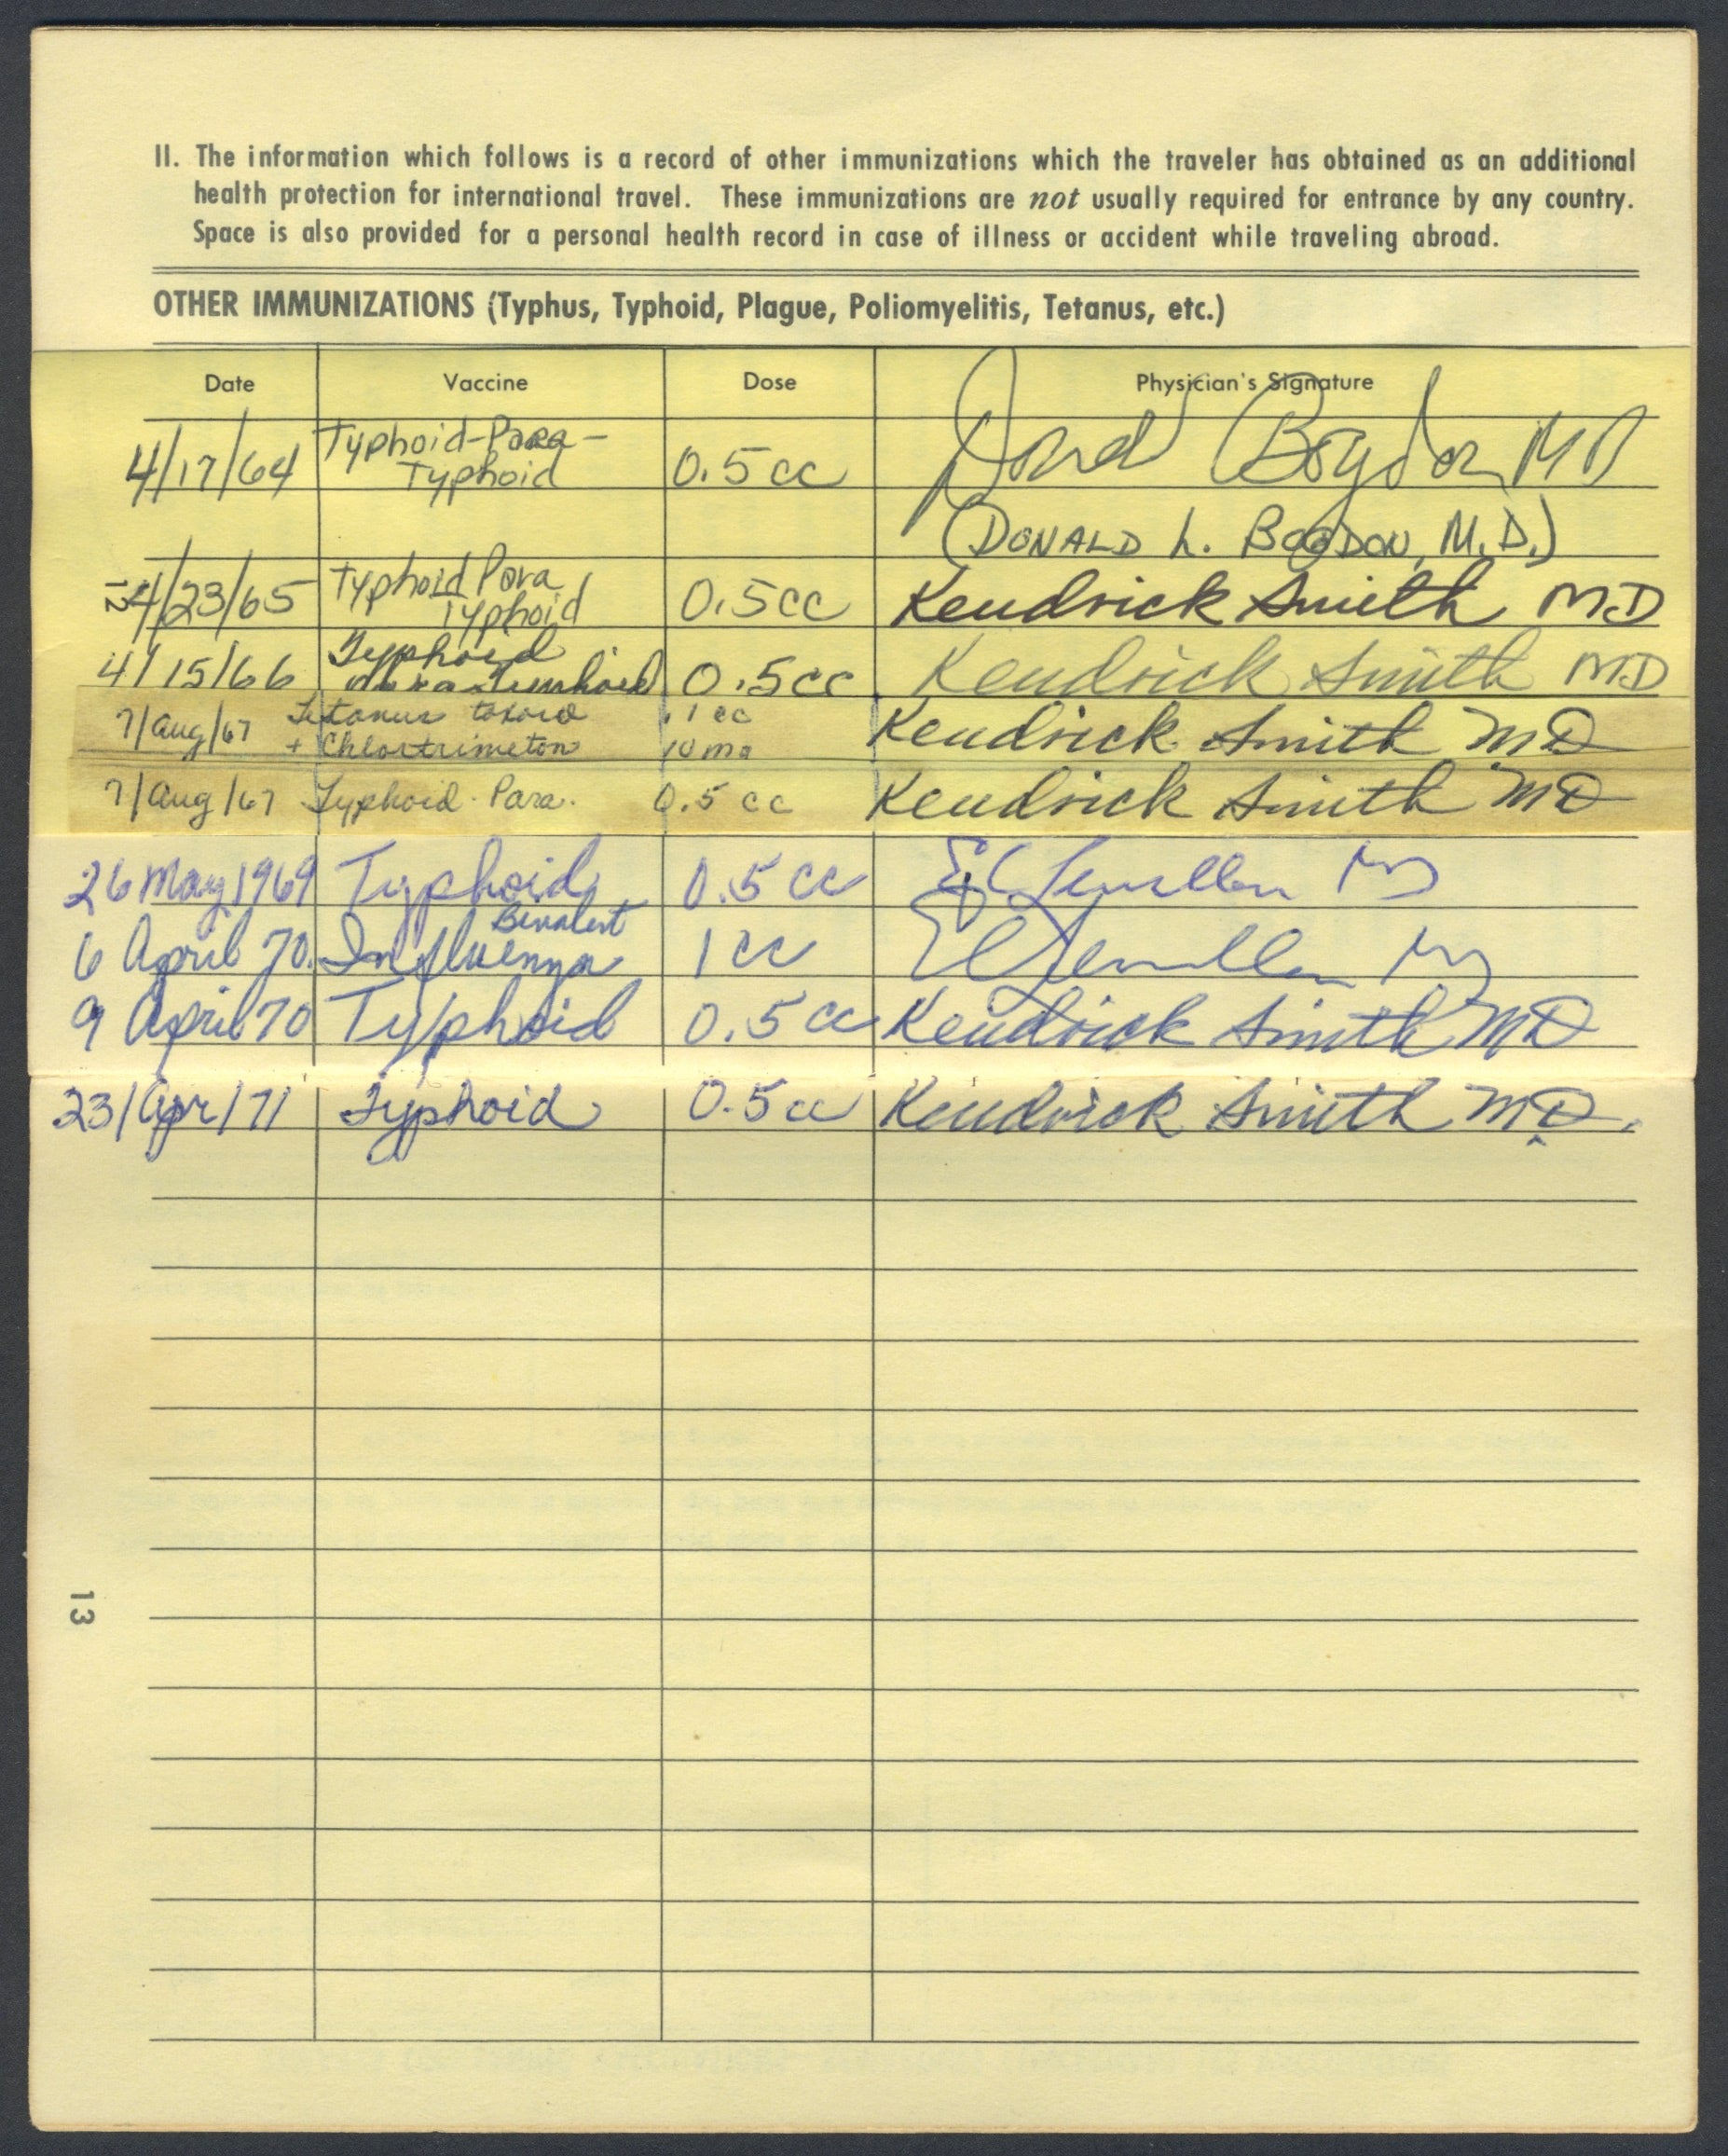 II. The information which follows is a record of other immunizations which the traveler has obtained as an additional
health protection for international travel. These immunizations are not usually required for entrance by any country.
Space is also provided for a personal health record in case of illness or accident while traveling abroad.
OTHER IMMUNIZATIONS (Typhus, Typhoid, Plague, Poliomyelitis, Tetanus, etc.)
Date Vaccine Dose Physician's Signature
4/17/64 Typhoid-Para- 0.5 cc Donald Bogdon MD
Typhoid
(DONALD L. BOGDON, M.D.)
12
4/23/65 Typhoid Para 0.5cc Kendrick Smith MD
Typhoid
4/15/66 Typhoid 0.5cc Kendrick Smith MD
para typhoid
7/Aug/67 Tetanus toxoid .1 cc Kendrick Smith MD
+ Chlortrimeton 10 mg
7/Aug/67 Typhoid - Para. 0.5 cc Kendrick Smith MD
26 May 1969 Typhoid 0.5 cc
Bivalent
6 April 70. Influenza 1 cc
9 April 70 Typhoid 0.5 cc Kendrick Smith MD
23/Apr/71 Typhoid 0.5 cc Kendrick Smith MD.
13